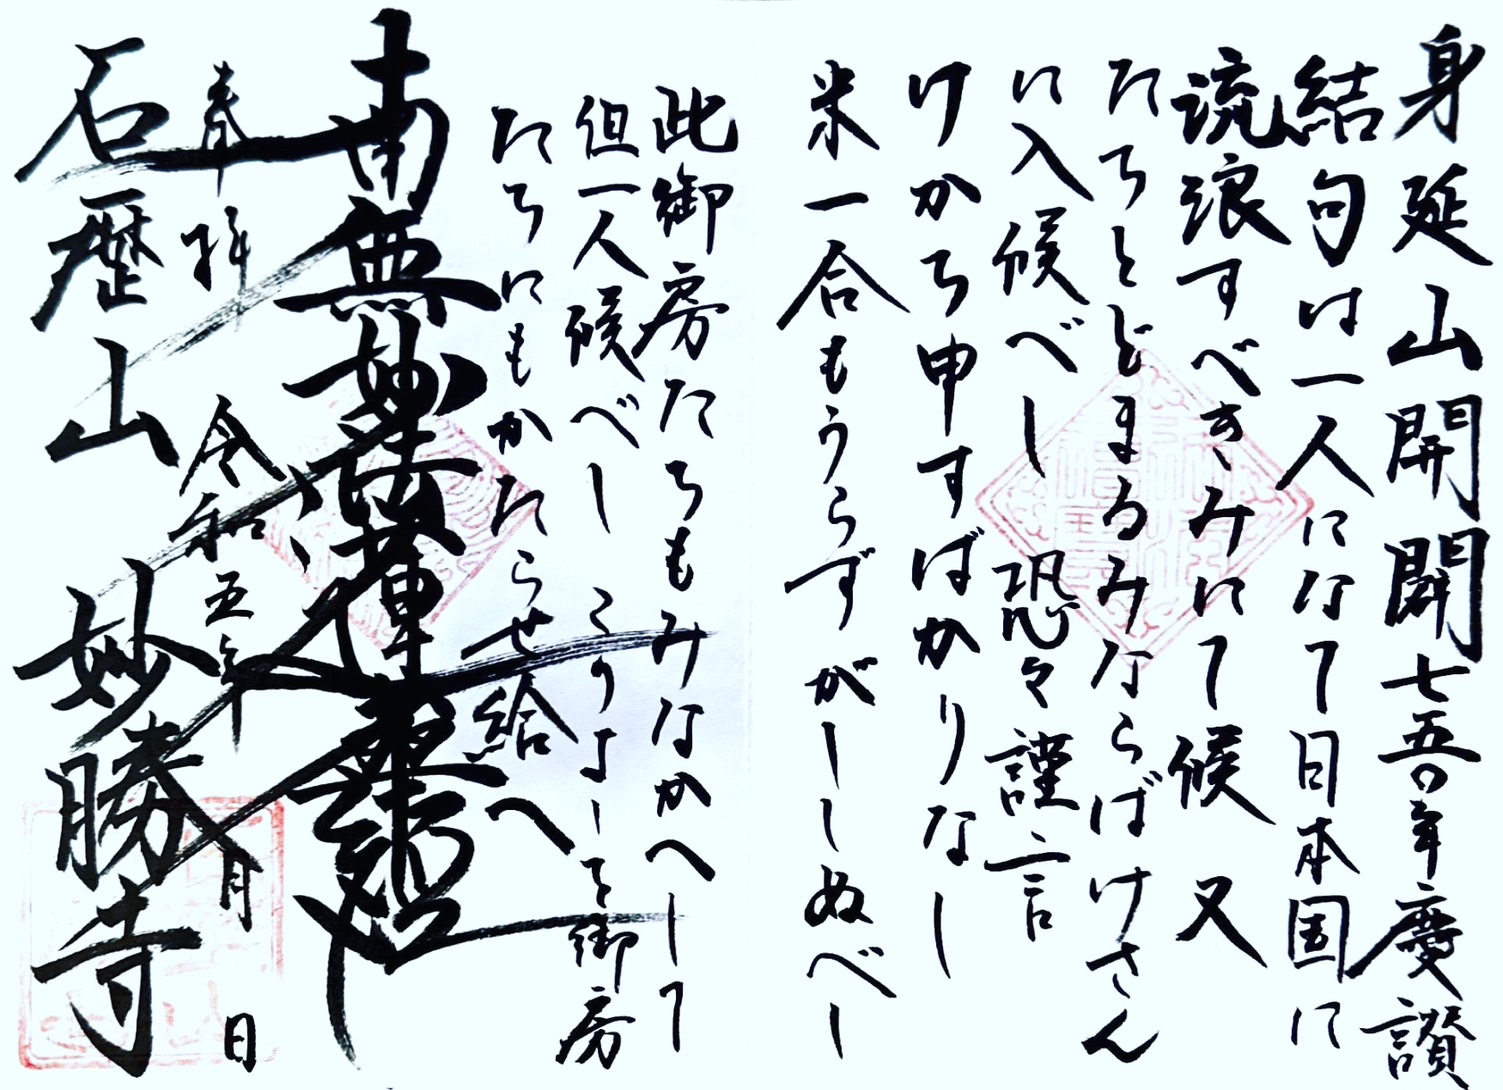 身延山開闢七五〇年慶讃
結句は一人になて日本国に
流浪すべきみにて候 又
たちとどまるみならばけさん
に入候べし 恐々謹言
けかち申すばかりなし
米一合もうらず がししぬべし
此御房たちもみなかへして
但一人候べし このよしを御房
たちにもかたらせ給へ
南無妙法蓮華経
奉拝 令和五年 月 日
石歴山 妙勝寺